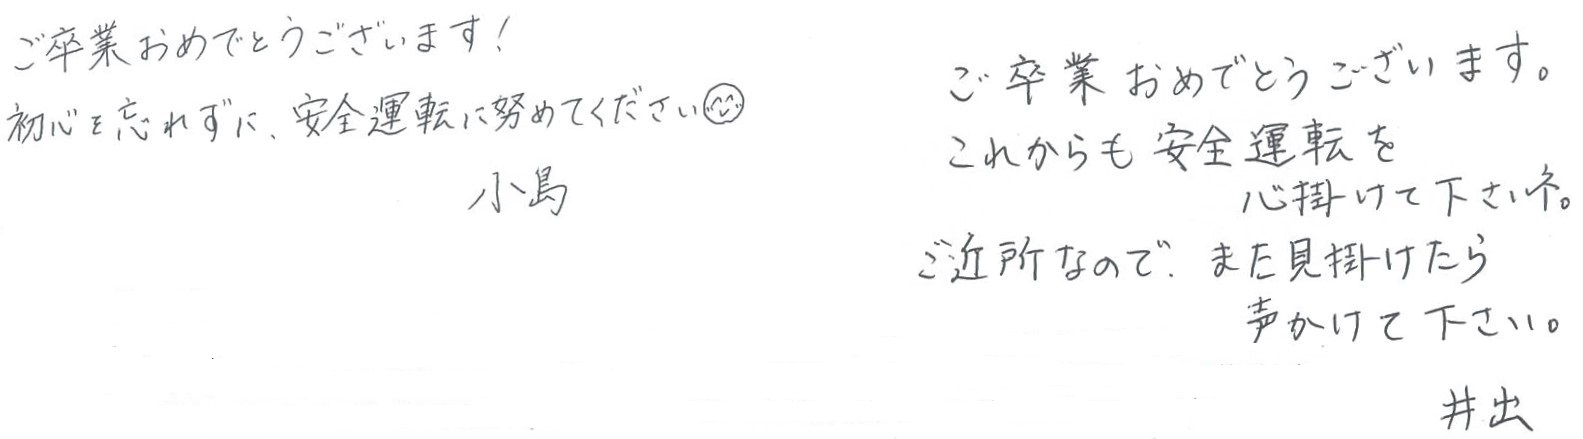 ご卒業おめでとうございます!
初心を忘れずに、安全運転に努めてください😊
小島
ご卒業おめでとうございます。
これからも安全運転を
心掛けて下さいネ。
ご近所なので、また見掛けたら
声かけて下さい。
井出